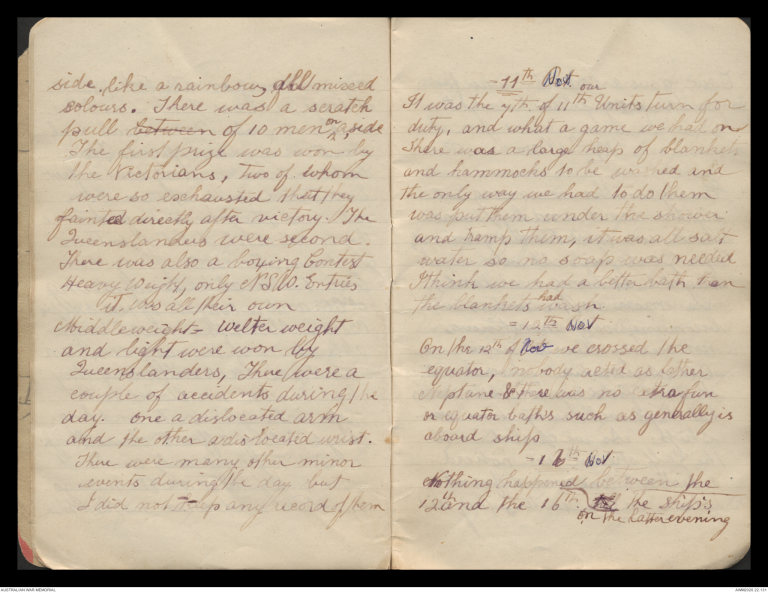 side, like a rainbow, all mixed
colours. There was a scratch
pull between of 10 men on aside
The first prize was won by
the Victorians, two of whom
were so exchausted that they
fainted directly after victory. The
Queenslanders were second.
There was also a boxing Contest
Heavy Weight, only N.S.W. Entries
it was all their own
Middleweight - welter weight
and light were won by
Queenslanders, There were a
couple of accidents during the
day. one a dislocated arm
and the other a dislocated wrist.
There were many other minor
events during the day but
I did not keep any record of them
- 11th Nov.
It was the 7th of 11th our Units turn for
duty, and what a game we had on
There was a large heap of blankets
and hammocks to be washed and
the only way we had to do them
was put them under the shower
and ramp them, it was all salt
water so no soap was needed
I think we had a better bath than
the blankets had wash.
= 12th Nov
On the 12th of Nov we crossed the
equator, nobody acted as father
Neptune & there was no extra fun
or equator baths such as generally is
aboard ship
- 16th Nov
Nothing happened between the
12th and the 16th the ship's
on the latter evening
AUSTRALIAN WAR MEMORIAL